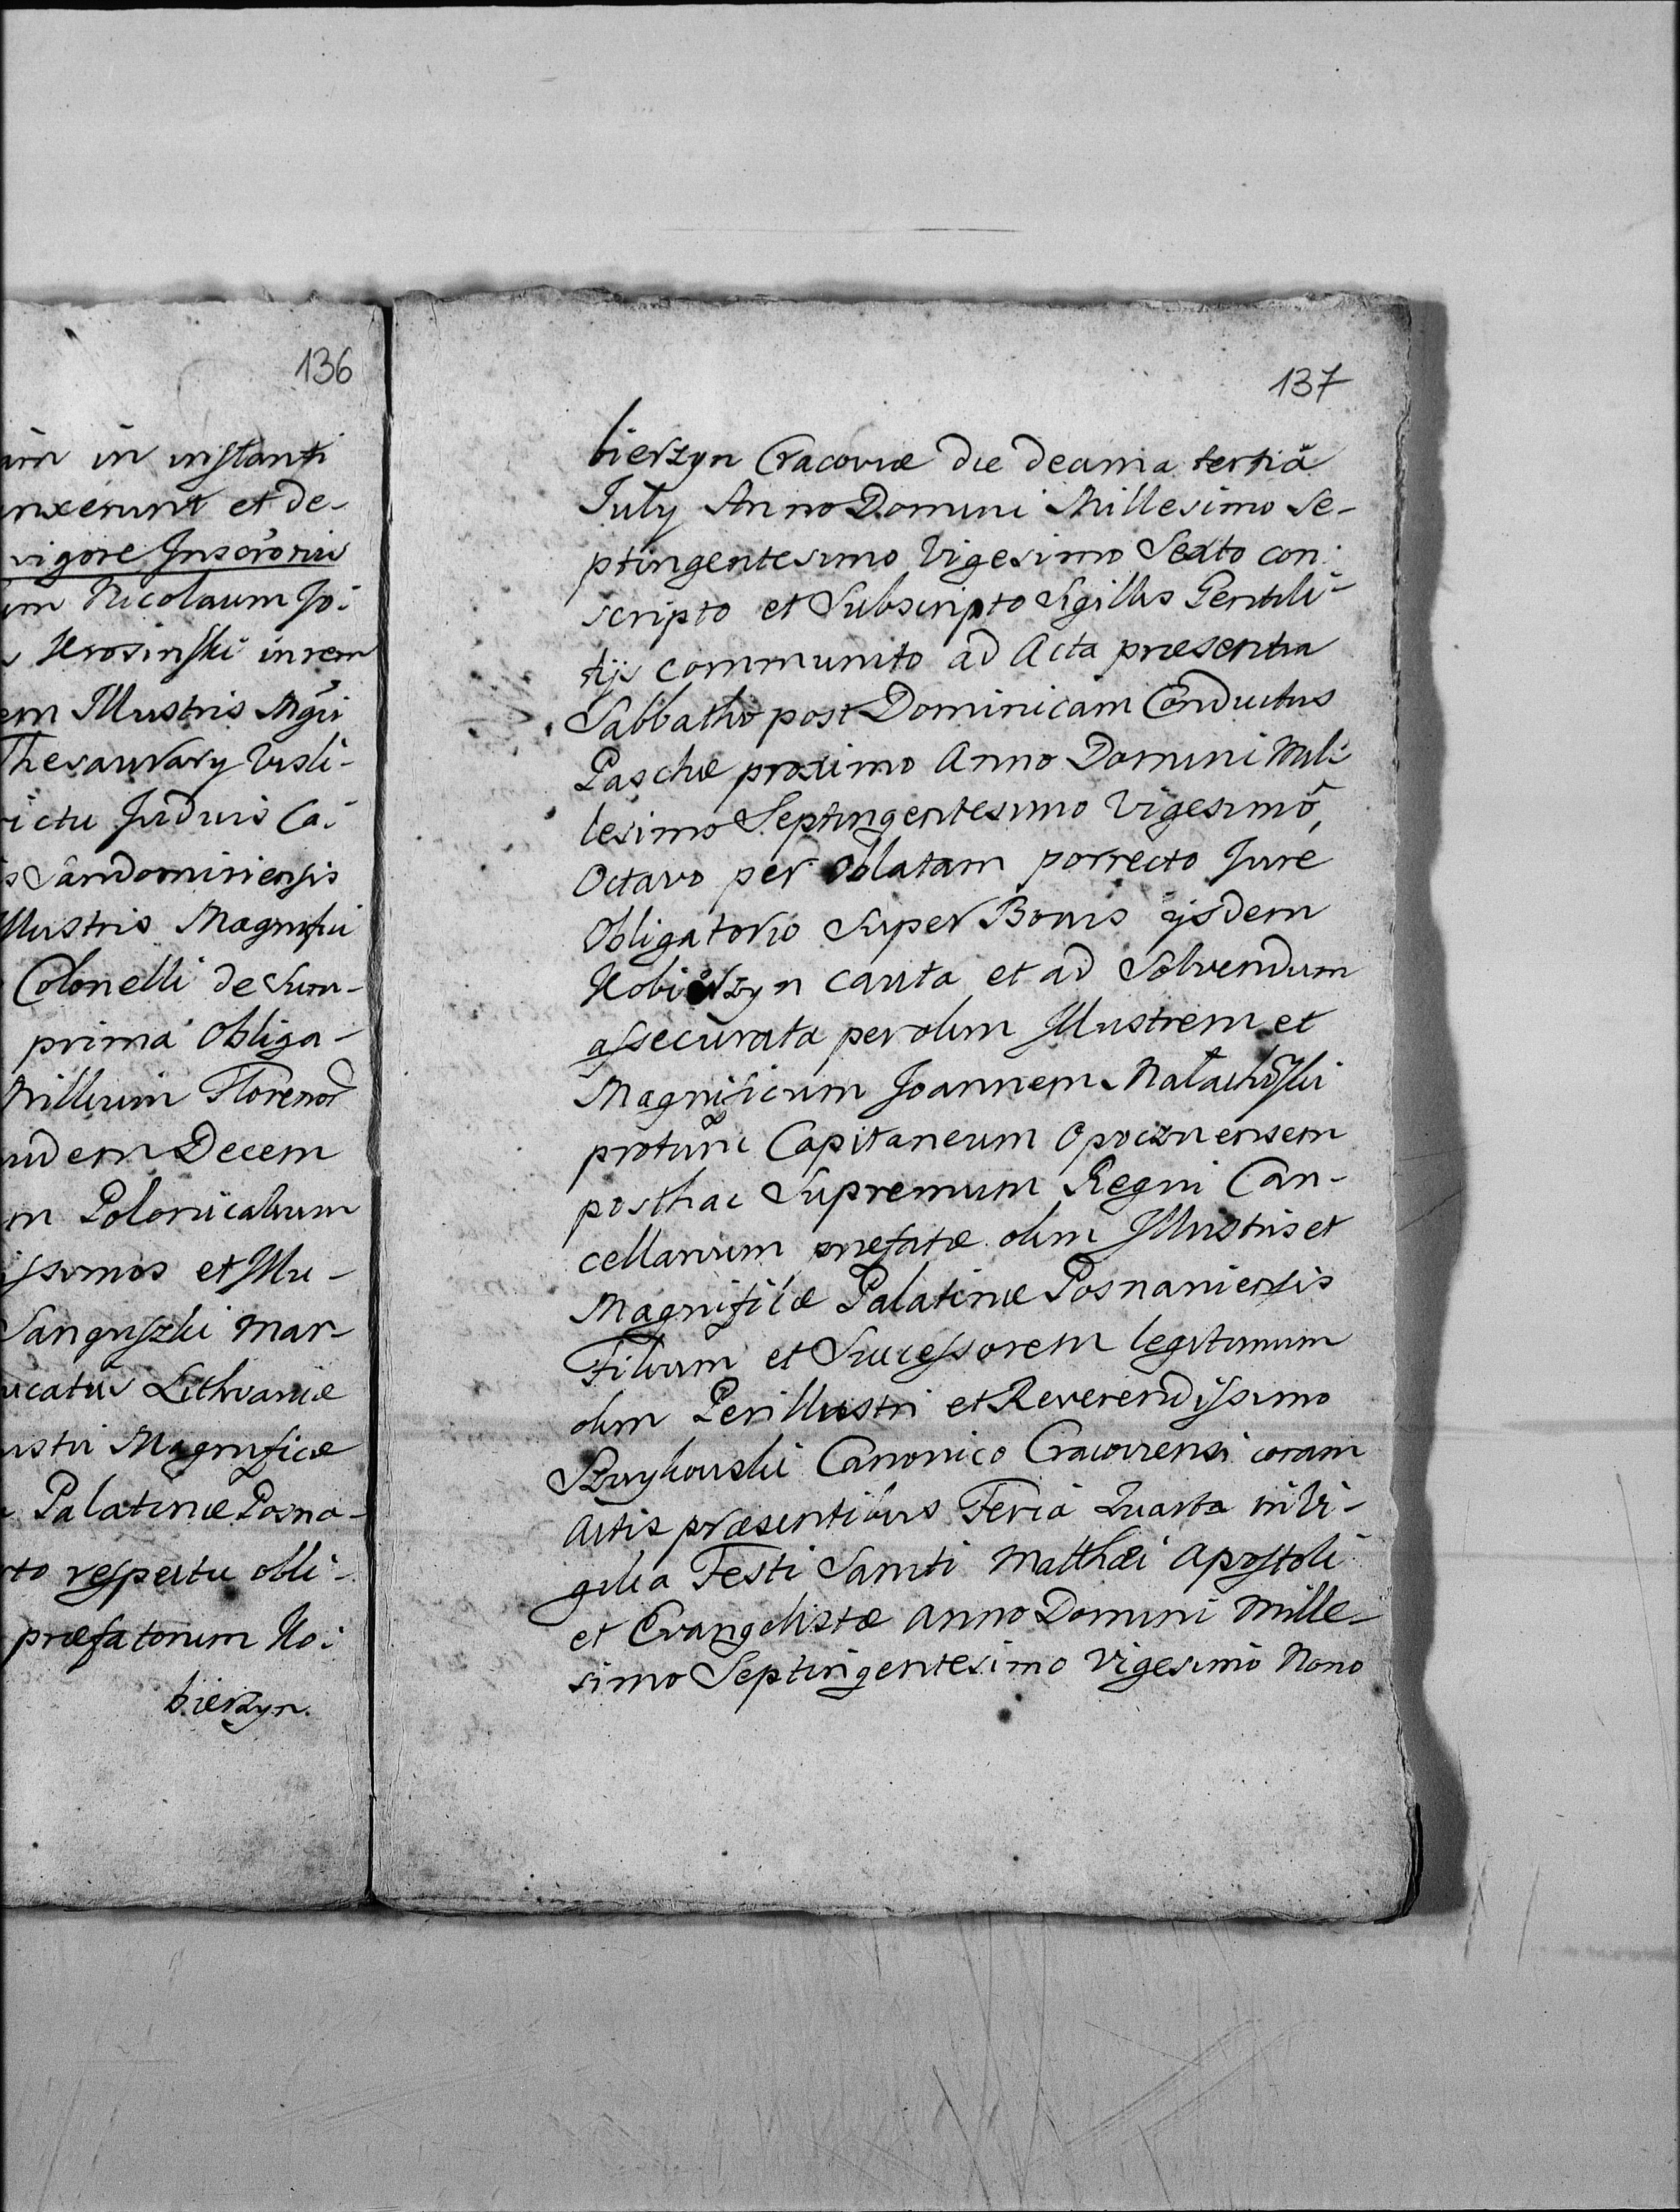 136
in instanti
nxerunt et de-
vigore Inscrōrius
im Nicolaum Jo:
Krosinski in rem
em Illustris Mgci
Thesaurary Visli-
ictu Juduis Ca:
s Sandomiriensis
llustris Magnifici
Colonelli de Sum-
prima Obliga-
Millium Floreno
udem Decem
m Polonicalium
issimos et Illu-
Sanguszki Mar-
ucatus Lithvaniæ
ustri Magnificæ
Palatinæ Posna-
to respectu obli-
præfatorum Ko:
bierzyn.
137
bierzyn Cracoviæ die decima tertiâ
July Anno Domini Millesimo Se-
ptingentesimo Vigesimo Sexto con:
scripto et Subscripto Sigillis Gentili-
tijs communito ad Acta præsentia
Sabbatho post Dominicam Conductus
Paschæ proximo Anno Domini Mil:
lesimo Septingentesimo Vigesimô,
Octavo per Oblatam porrecto Jure
Obligatorio Super Bonis ijsdem
Kobierzyn cauta et ad Solvendum
assecurata per olim Illustrem et
Magnificum Joannem Małachoski
protunc Capitaneum Opocznensem
posthac Supremum Regni Can-
cellarium præfatæ olim Illustris et
Magnificæ Palatinæ Posnaniensis
Filium et Successorem legitimum
olim Perillustri et Reverendissimo
Szuykowski Canonico Cracoviensi coram
Actis præsentibus Feriâ Quarta in Vi-
gilia Festi Sancti Matthæi Apostoli
et Evangelistæ Anno Domini Mille-
simo Septingentesimo Vigesimo Nono